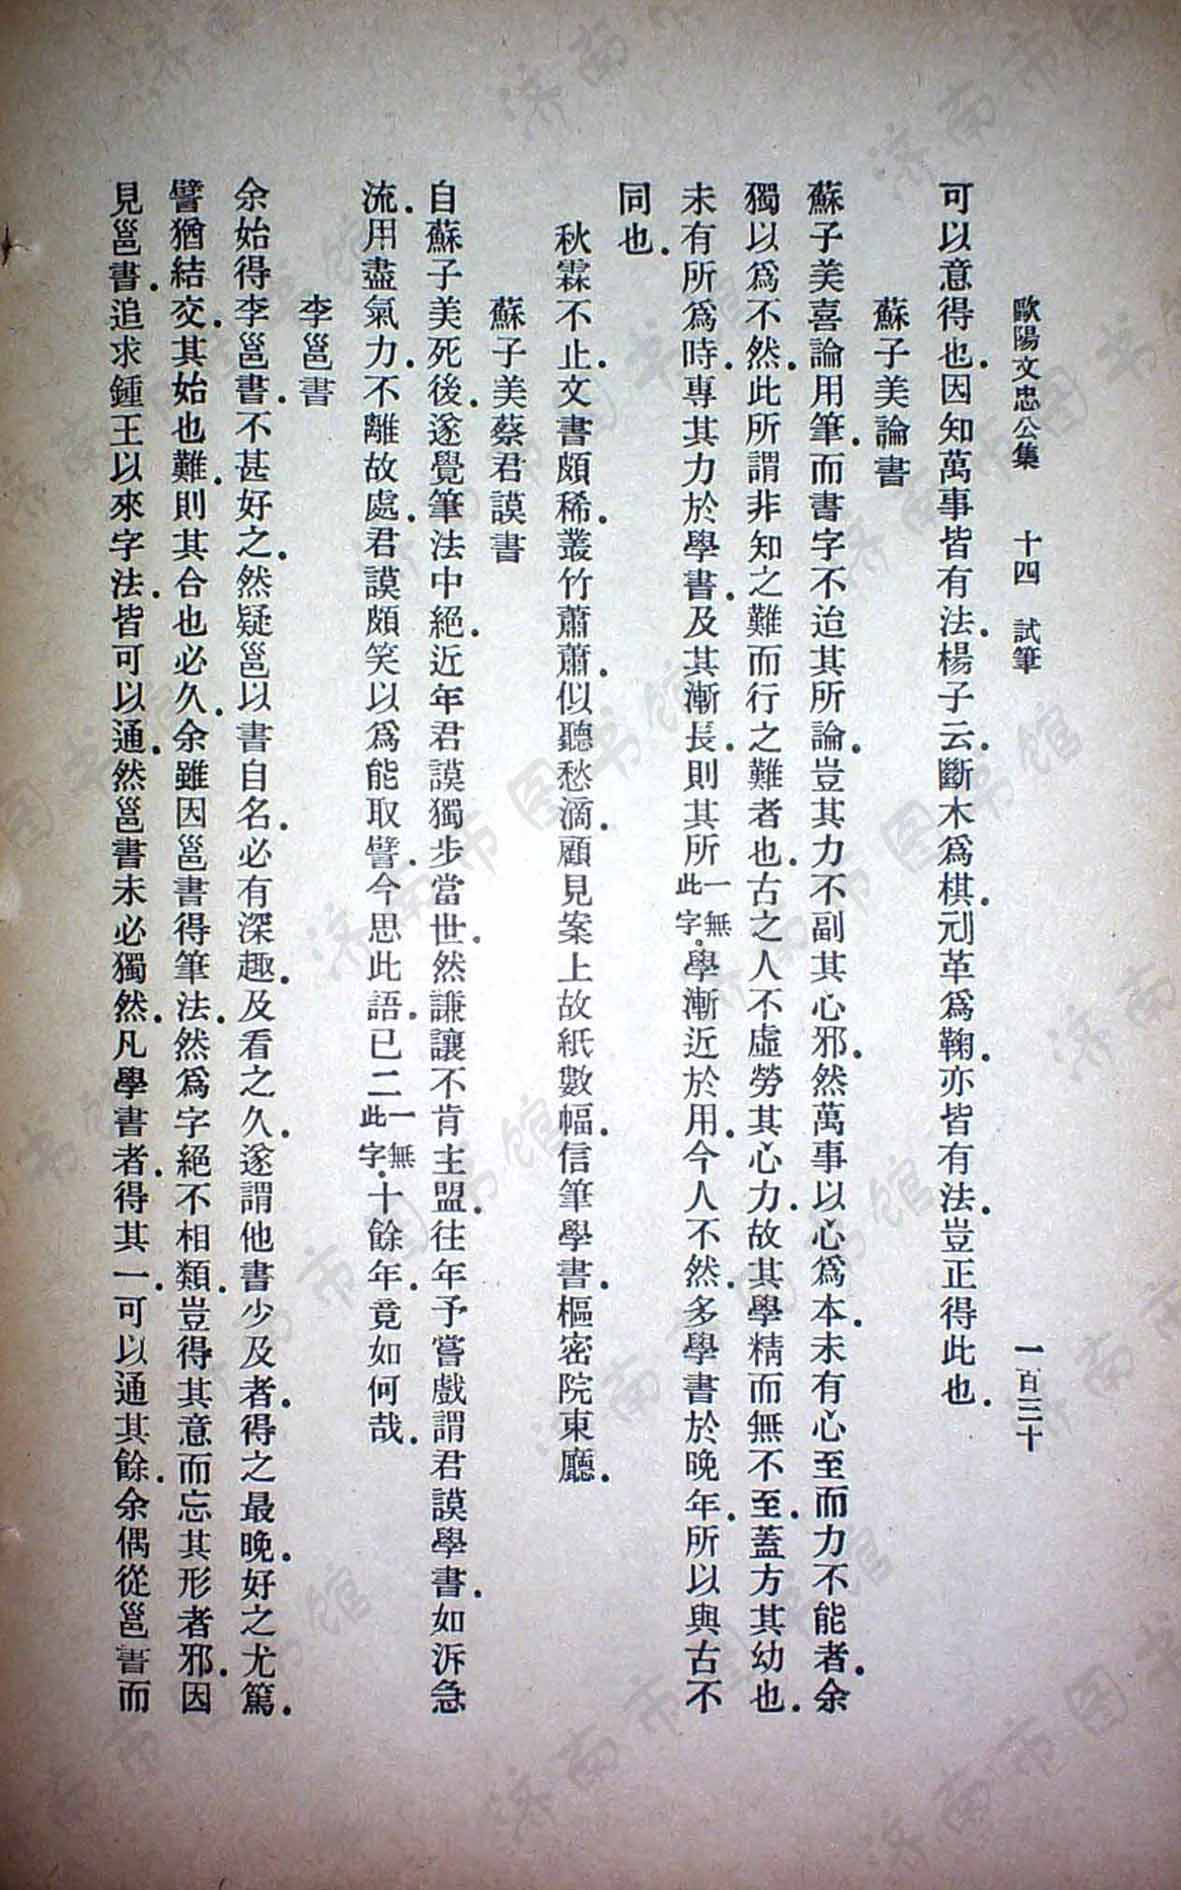 歐陽文忠公集　十四　試筆　一百三十
可以意得也.因知萬事皆有法.楊子云.斷木爲棋.刓革爲鞠.亦皆有法.豈正得此也.
蘇子美論書
蘇子美喜論用筆.而書字不迨其所論.豈其力不副其心邪.然萬事以心爲本.未有心至而力不能者.余
獨以爲不然.此所謂非知之難而行之難者也.古之人不虛勞其心力.故其學精而無不至.蓋方其幼也.
未有所爲時.專其力於學書.及其漸長.則其所一無此字.學漸近於用.今人不然.多學書於晚年.所以與古不
同也.
秋霖不止.文書頗稀.叢竹蕭蕭.似聽愁滴.顧見案上故紙數幅.信筆學書.樞密院東廳.
蘇子美蔡君謨書
自蘇子美死後.遂覺筆法中絕.近年君謨獨步當世.然謙讓不肯主盟.往年予嘗戲謂君謨學書.如泝急
流.用盡氣力.不離故處.君謨頗笑以爲能取譬.今思此語.已二一無此字.十餘年.竟如何哉.
李邕書
余始得李邕書.不甚好之.然疑邕以書自名.必有深趣.及看之久.遂謂他書少及者.得之最晚.好之尤篤.
譬猶結交.其始也難.則其合也必久.余雖因邕書得筆法.然爲字絕不相類.豈得其意而忘其形者邪.因
見邕書.追求鍾王以來字法.皆可以通.然邕書未必獨然.凡學書者.得其一.可以通其餘.余偶從邕書而